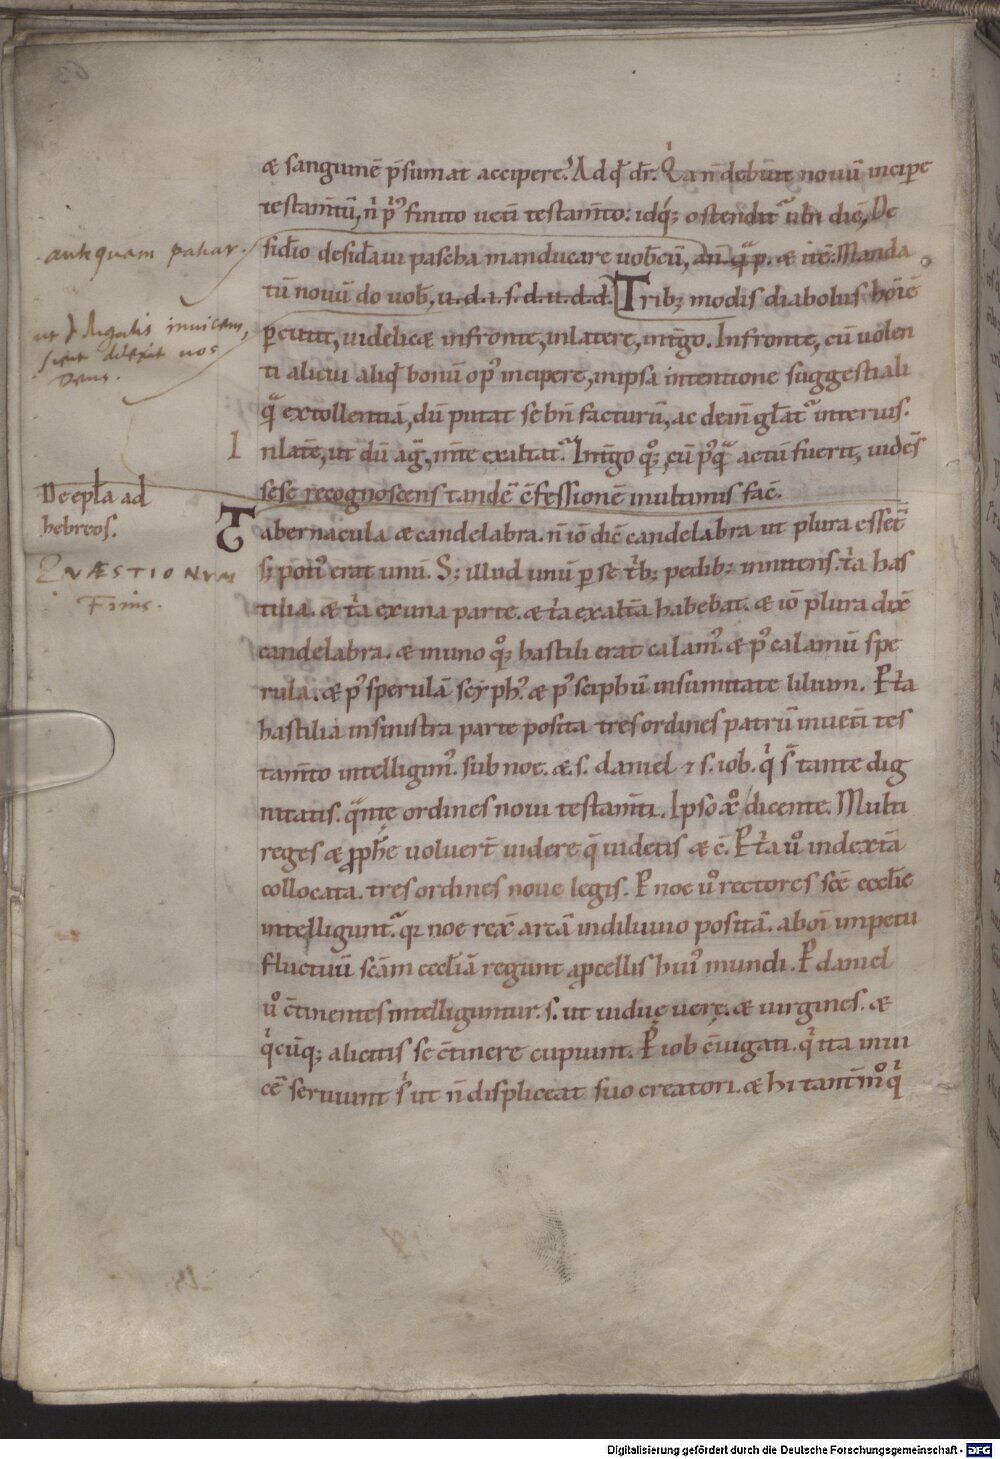 æ sanguinē p̄sumat accipere. Ad qđ dr̄. Q̊a n̄ debuit nouū incipe
testam̄tū, n̄ p̊ finito uet̄i testam̄to. idq; ostendit᷑ ubi dic̄, De
siđio desiđaui pascha manducare uob̄cū, an̄. q̄ p. æ itē. Manda
tū nouū do uob̄, u. d. i. s. d. u. d. d. Trib; modis diabolus hoīē
p̄cutit, uidelicæ infronte, inlatere, int̄go. Infronte, cū uolen
ti alicui aliqđ bonū op᷒ incipere, inipsa intentione suggestiali
q̄ extollentiā, dū putat se bn̄ facturū, ac dein̄ gl̄at᷑ interuis.
I nlat̄e, ut dū aḡ, inīte exaltat᷑. Int̄go qq;, cū p᷒q̄ actū fuerit, uidēs
sese recognoscens tandē c̄fessionē multimis fac̄.
Tabernacula æ candelabra. n̄ iō dic̄ candelabra ut plura essēt
s; poti᷒ erat unū. S; illud unū p se t̄b; pedib; innitens. t̄a has
tilia. æ t̄a exuna parte. æ t̄a exalt̄a habebat. æ iō plura dix̄
candelabra. æ inuno qq; hastili erat calam᷒. æ p᷒ calamū spe
rula. æ p᷒ sperulā scyph᷒. æ p᷒ sciphū insumitate lilium. P t̄a
hastilia insinistra parte posita tres ordines patrū inuet̄i tes
tam̄to intelligim᷒. sub noe. æ. s. daniel ⁊ s. iob. q̇ s̄ tante dig
nitatis. q̄nte ordines noui testam̄ti. Ipso x̊ dicente. Multi
reges æ p̱ph̄e uoluer̄t uidere q̄ uidetis æ c̄. P t̄a u̇ō indext̄a
collocata. tres ordines noue legis. P noe u̇ō rectores sc̄e eccl̄ie
intelligunt᷑. q̄ noe rex̄ arcā indiluuio positā. aboī impetu
fluctuū sc̄am eccl̄iā regunt ap̱cellis hui᷒ mundi. P daniel
u̇ō c̄tinentes intelliguntur. s. ut uidue uere. æ uirgines. æ
q̇cūq; alicitis se c̄tinere cupiunt. P iob c̄iugati. q̇ ita inui
cē seruiunt s̄ ut n̄ displiceat suo creatori. æ hi tantm̄ō q̇
antequam patiar.
invicem,
sicut dilexit vos
Deus.
De epl̄a ad
hebreos.
QVÆSTIONVM
Finis.
Digitalisierung gefördert durch die Deutsche Forschungsgemeinschaft - DFG